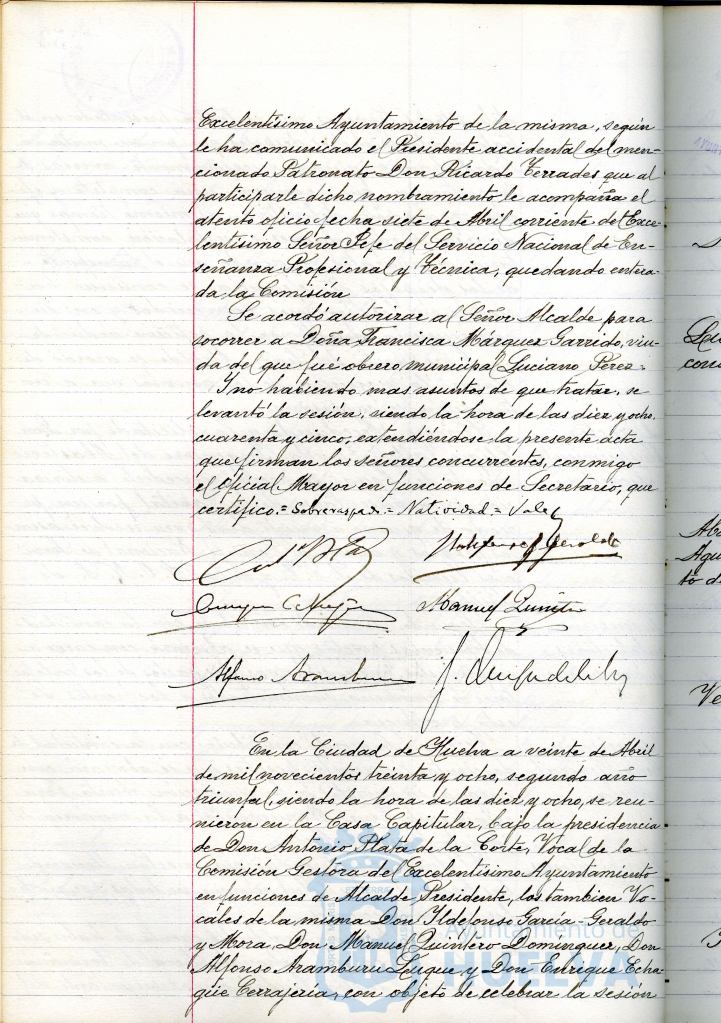 Excelentísimo Ayuntamiento de la misma, según
le ha comunicado el Presidente accidental del men-
cionado Patronato Don Ricardo Terrades que al
participarle dicho nombramiento le acompaña el
atento oficio fecha siete de Abril corriente del Exce-
lentísimo Señor Jefe del Servicio Nacional de En-
señanza Profesional y Técnica, quedando entera-
da la Comisión
Se acordó autorizar al Señor Alcalde para
socorrer a Doña Francisca Márquez Garrido, viu-
da del que fué obrero municipal Luciano Pérez.
Y no habiendo mas asuntos de que tratar, se
levantó la sesión, siendo la hora de las diez y ocho,
cuarenta y cinco, extendiéndose la presente acta
que firman los señores concurrentes, conmigo
el Oficial Mayor en funciones de Secretario, que
certifico.= Sobreraspado.= Natividad.= Vale
Manuel Quintero
Alfonso Aramburu
En la Ciudad de Huelva a veinte de Abril
de mil novecientos treinta y ocho, segundo año
triunfal, siendo la hora de las diez y ocho, se reu-
nieron en la Casa Capitular, bajo la presidencia
de Don Antonio Plata de la Corte, Vocal de la
Comisión Gestora del Excelentísimo Ayuntamiento
en funciones de Alcalde Presidente, los tambien Vo-
cales de la misma Don Ildefonso García-Geraldo
y Mora, Don Manuel Quintero Dominguez, Don
Alfonso Aramburu Luque y Don Enrique Echa-
güe Cerrajería, con objeto de celebrar la sesión
Ayuntamiento de
HUELVA